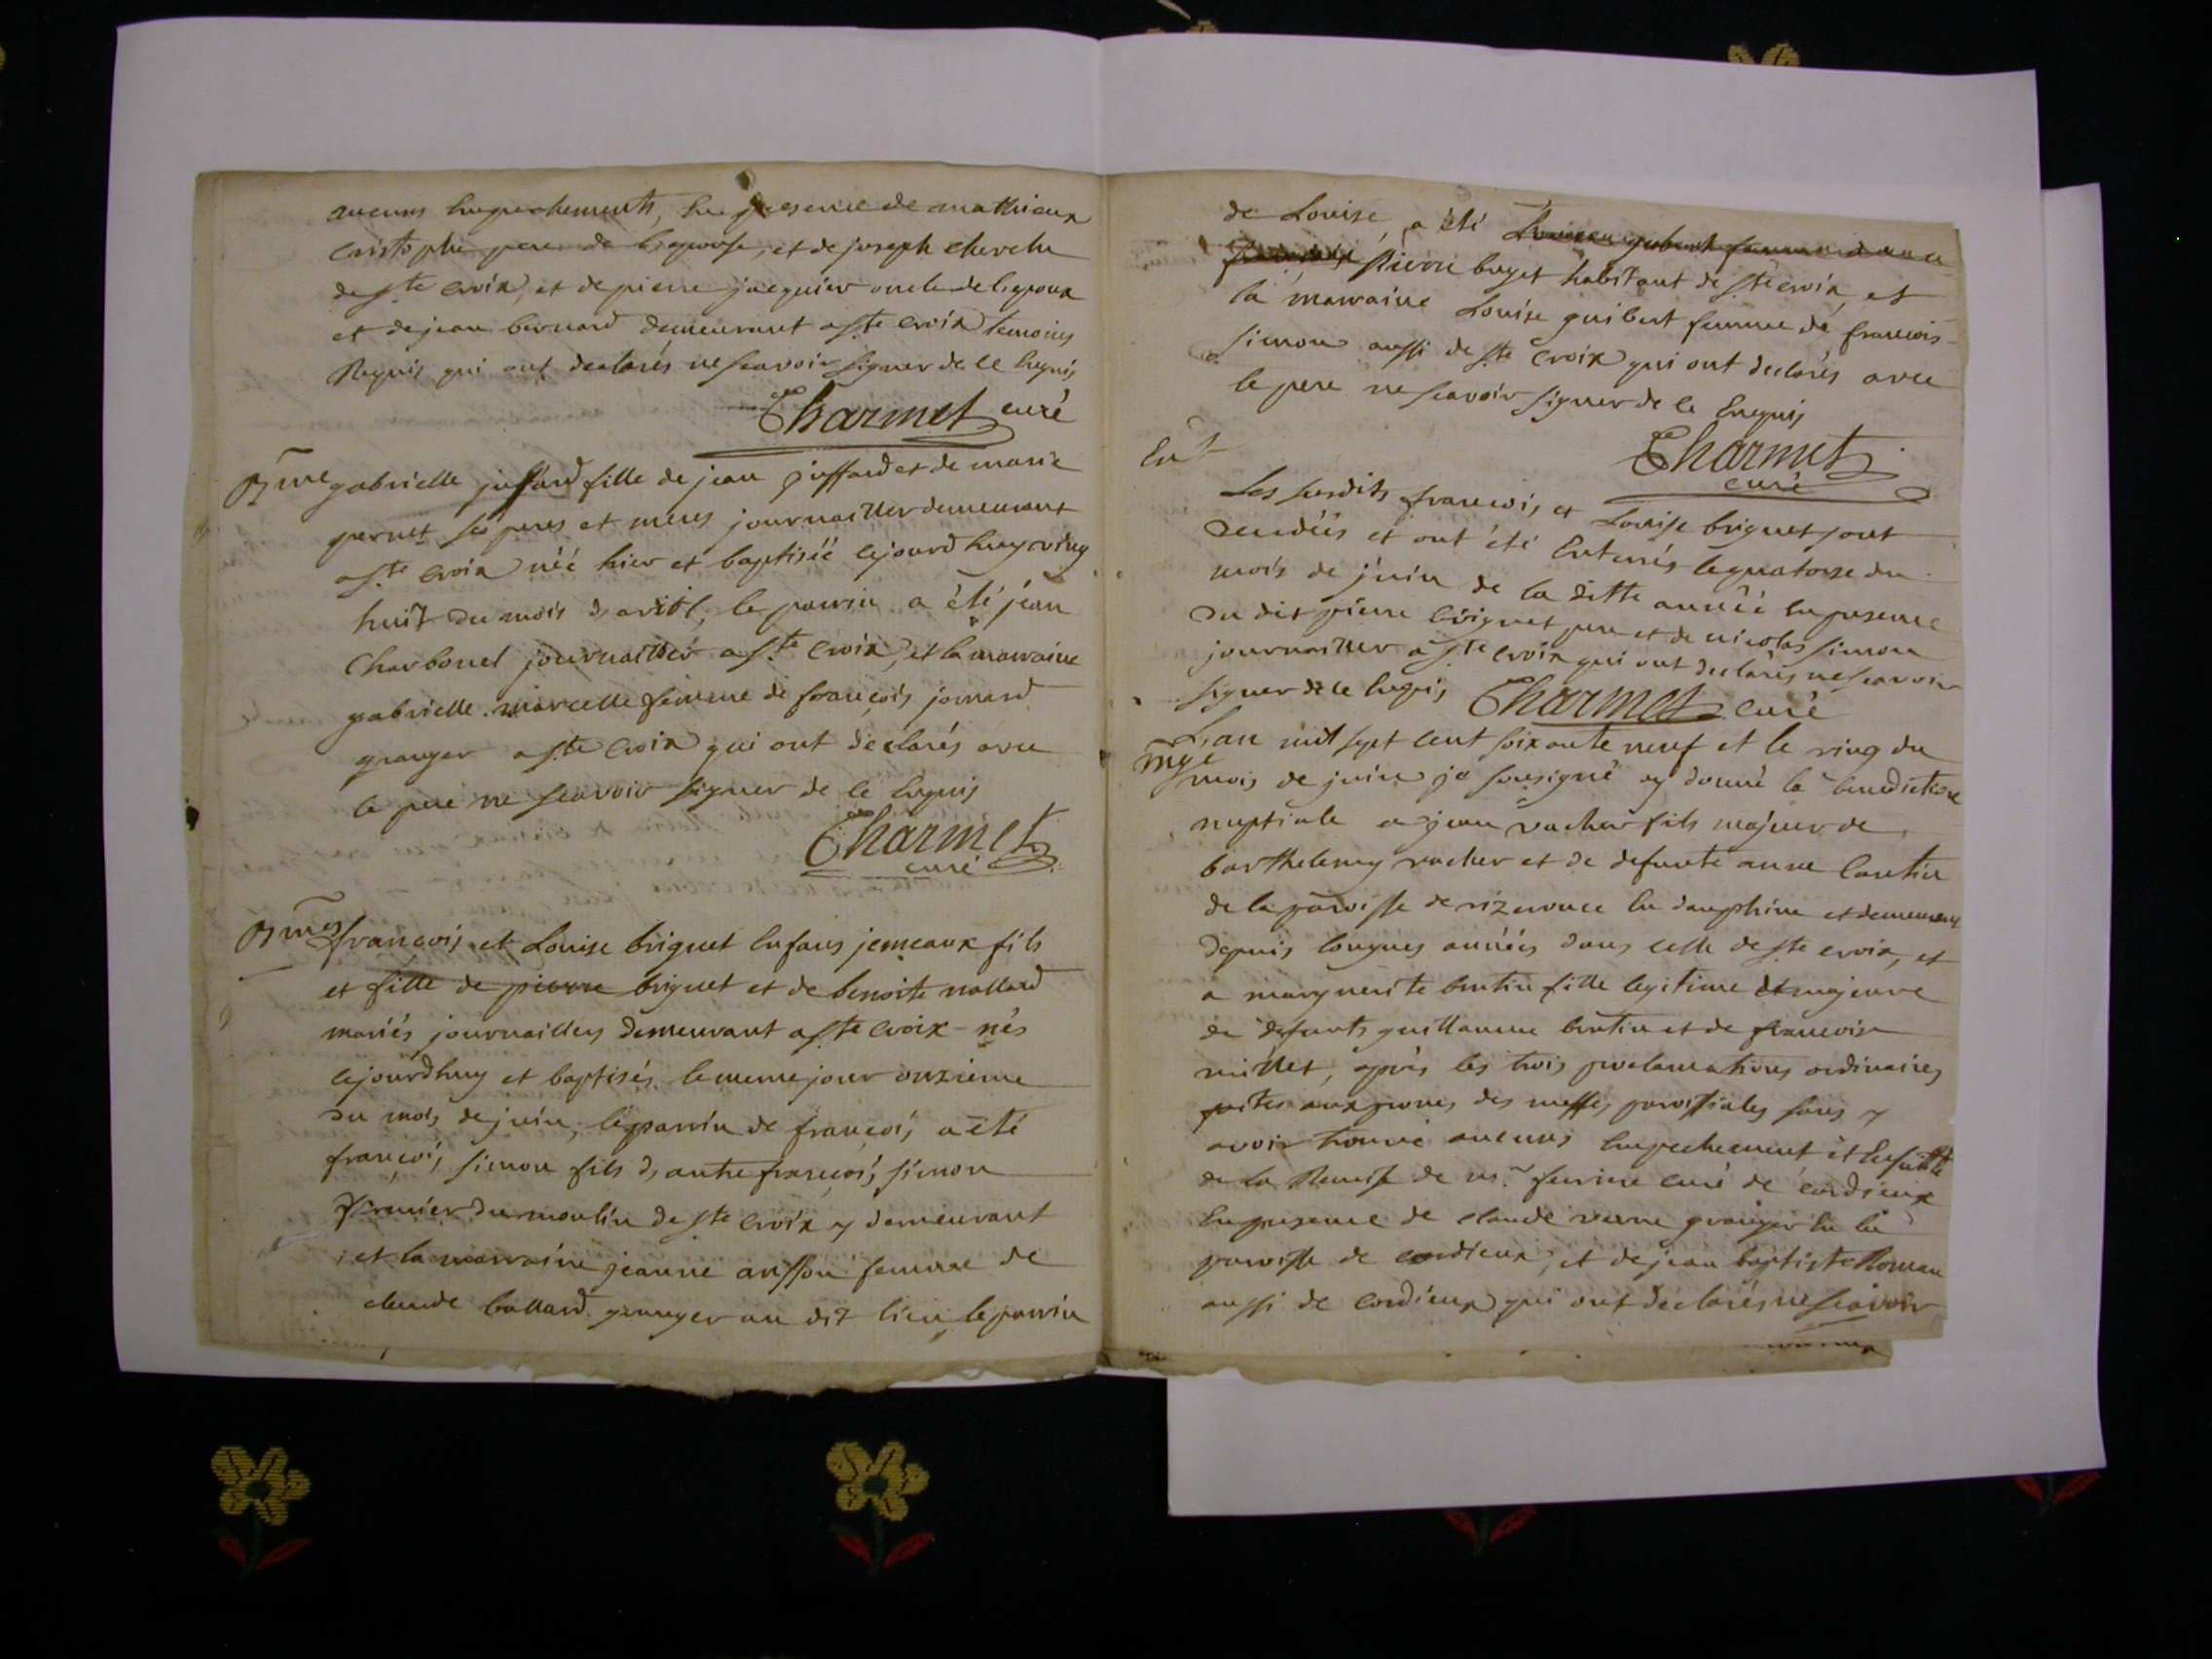 aucuns Empechements, En presence de mathieux
Cristophe pere de l'epouse, et de joseph cherche
de ste croix, et de pierre jacquier oncle de l'epoux
et de jean bernard demeurant a ste croix temoins
Requis qui ont declarés ne scavoir signer de ce Enquis
Charmet curé
Bme gabrielle juffard fille de jean juffard et de marie
pernet ses peres et meres journaillier demeurant
a ste croix néé hier et baptiséé cejourdhuy ving
huit du mois d'avril, le parrin a été jean
Charbonel journaillier a ste Croix, et la marraine
gabrielle marcelle femme de françois jomard
granger a ste Croix qui ont declarés avec
le pere ne scavoir signer de ce Enquis
Charmet
curé
Bmes françois et Louise briguet Enfans jemeaux fils
et fille de pierre briguet et de benoite mallard
mariés journailliers demeurant a ste Croix nés
cejourdhuy et baptisés le meme jour onzieme
du mois de juin, le parrin de françois a eté
françois simon fils d'autre françois simon
du moulin de ste Croix y demeurant
et la marraine jeanne femme de
claude ballard granger au dit lieu, le parrin
de Louise, a été
Pierre buget habitant de ste croix, et
la marraine Louise guibert femme de francois
simon aussi de ste Croix qui ont declarés avec
le pere ne scavoir signer de ce Enquis
Charmet
curé
Ent
Les susdits francois et Louise briguet sont
decedéés et ont été Enterrés le quatorze du
mois de juin de la ditte annéé En presence
du dit pierre briguet pere et de nicolas simon
journaillier a ste croix qui ont declarés ne scavoir
signer de ce Enquis Charmet curé
mge L'an mil sept cent soixante neuf et le ving du
mois de juin je sousigné ay donné la benediction
nuptiale a jean vacher fils majeur de
barthelemy vacher et de defunte anne
de la paroisse de En dauphine et demeurant
depuis longues annéés dans celle de ste croix, et
a marguerite bertin fille legitime et majeure
de defunts guillaume bertin et de francoise
millet, après les trois proclamations ordinaires
faites aux prones des messes paroissiales sans y
avoir trouvé aucuns Empechement et Ensuitte
de la Remise de mr. curé de cordieux
En presence de claude verne granger En la
paroisse de cordieux, et de jean baptiste Roman
aussi de Cordieux qui ont declarés ne scavoir